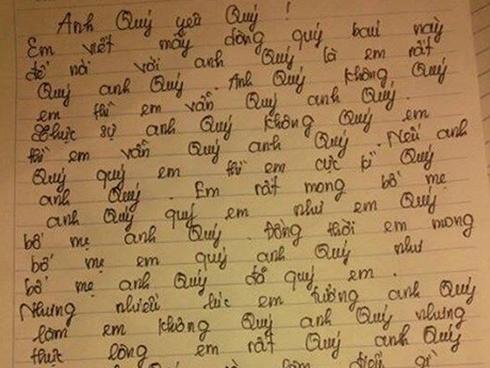 Anh Quý yêu Quý !
Em viết mấy dòng quý baui này
để nói với anh Quý là em rất
Quý anh Quý. Anh Quý không Quý
em thì em vẫn Quý anh Quý.
Thực sự anh Quý không Quý em
thì em vẫn Quý anh Quý. Nếu anh
Quý quý em thì em cực kì Quý
anh Quý. Em rất mong bố mẹ
anh Quý quý em như em Quý
bố mẹ anh Quý. Đồng thời em mong
bố mẹ em quý anh Quý như
bố mẹ anh Quý đã quý em.
Nhưng nhiều lúc em tưởng anh Quý
làm em không Quý anh Quý nhưng
thực lòng em rất Quý anh Quý